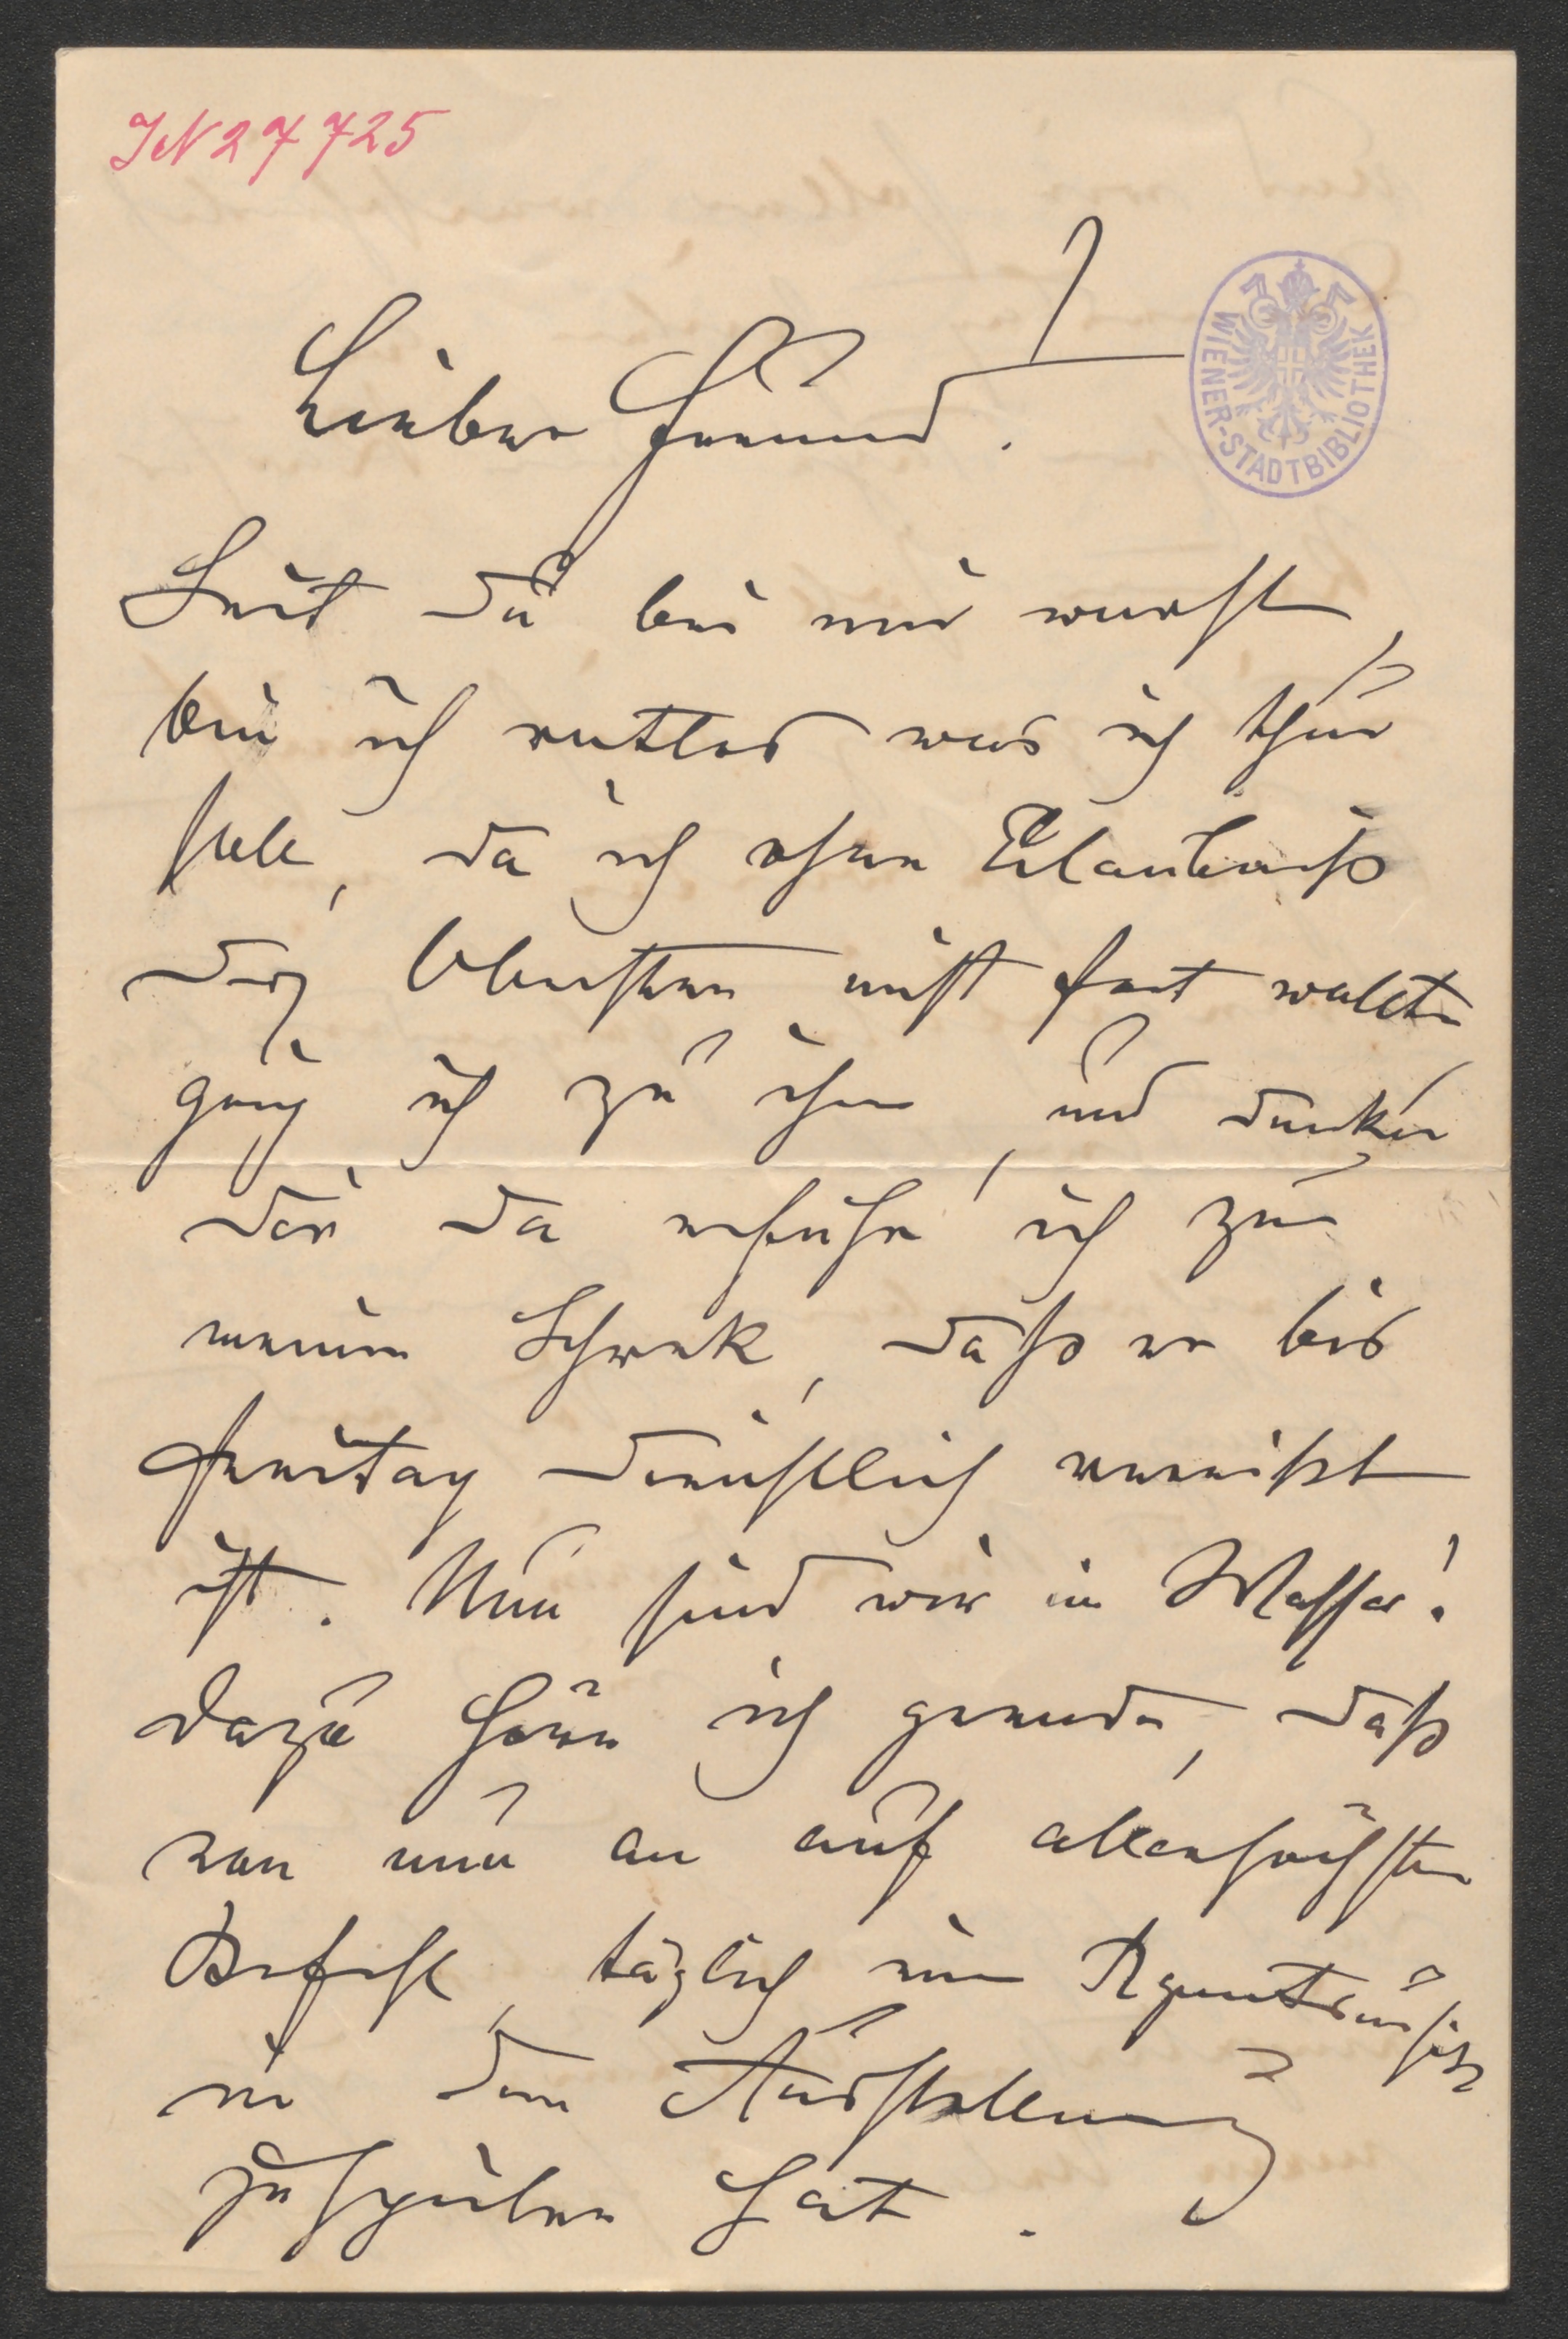 IN 27725
WIENER-STADTBIBLIOTHEK
Lieber Freund.
Seit du bei mir warst,
bin ich ratlos was ich thun
solle, da ich ohne Erlaubniß
des Obersten nicht fort wollte
ging ich zu ihm, und denke
dir da erfuhr ich zu
meinem Schrek, daß er bis
Freitag dienstlich verreißt
ist. Nun sind wir im Wasser!
Dazu höre ich gerade, daß
von nun an auf allerhöchsten
Befehl, täglich eine Rgmtsmusik
in der Ausstellung
zu spielen hat.